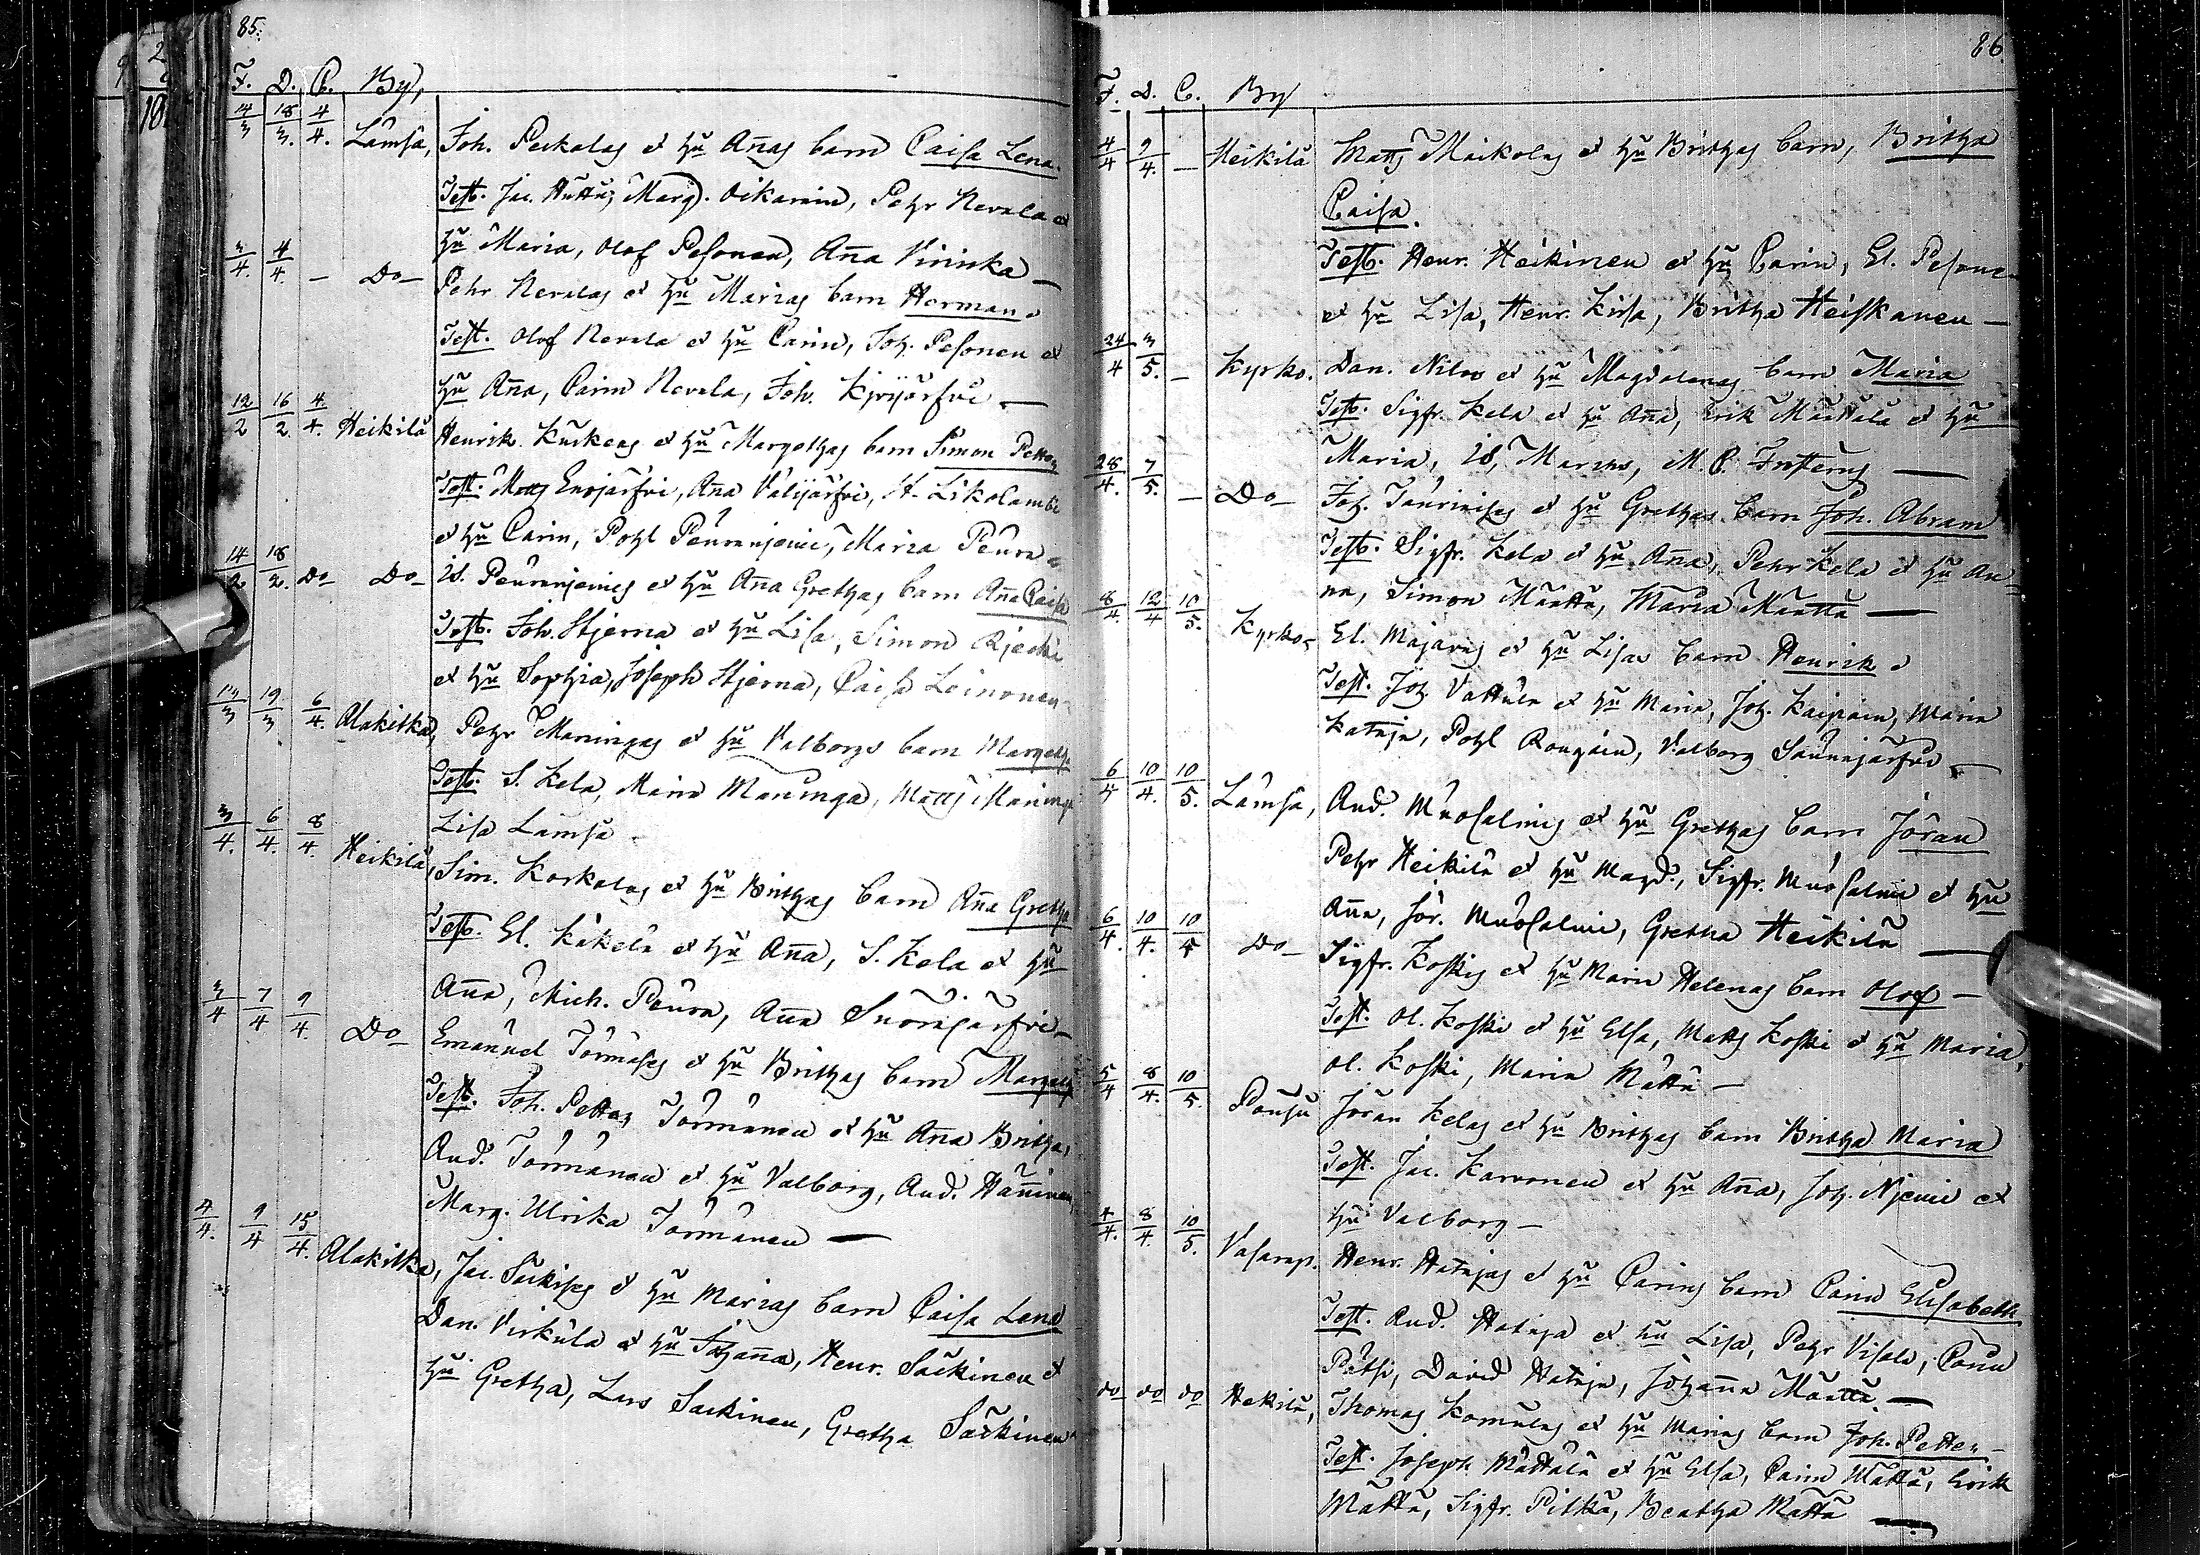 85.
F. D. C. By,
14/3 18/3. 4/4. Lämsä, Joh. Peckalas et hu Añas barn Caisa Lena.
Test. Jac. Huttu, Marg. Oikarain, Pehr Nevala et
hu Maria, Olof Pesonen, Aña Virinka —
3/4. 4/4. — Do — Pehr Nevalas et hu Marias barn Herman.
Test. Olof Nevala et hu Carin, Joh. Pesonen et
hu Aña, Carin Nevala, Joh. —
12/2 16/2. 4/4. Heikilä Henrik Kurkeas et hu Margethas barn Simon Petter
Test. Matts Enojärfvi, Aña Valijärfvi, H. Likolambi
et hu Carin, Pohl Peuranjemi, Maria Peura
14/2 18/2. Do Do — Is. Peuranjemis et hu Aña Grethas barn Aña Caisa
Test. Joh. Stjerna et hu Lisa, Simon Rjecki
et hu Sophia, Joseph Stjerna, Caisa Leinonen
19/3 6/4. Alakitka, Pehr Maningas et hu Valborgs barn Margetha
Test. S. Kela, Maria Maninga, Matts Maninga
Lisa Lämsä —
3/4. 6/4. 8/4. Heikilä, Sim. Korkalas et hu Brithas barn Aña Gretha
Test. El. Käkelä et hu Aña, S. Kela et hu
Aña, Mich. Peura, Aña Suorajärfvi —
3/4 7/4 9/4. Do Emanuel Törmäses et hu Brithas barn Margetha
Test. Joh. Petter Törmänen et hu Aña Britha,
And. Törmänen et hu Valborg, And. Häñinen,
Marg. Ulrika Törmänen —
4/4. 9/4 15/4. Alakitka, Jac. Säkises et hu Marias barn Caisa Lena
Dan. Virkula et hu Johaña, Henr. Säckinen et
hu Gretha, Lars Säckinen, Gretha Säckinen
86
F. D. C. By
4/4 9/4. — Heikilä Matts Määkolas et hu Brithas barn, Britha
Caisa.
Test. Henr. Heikinen et hu Carin, El. Pesonen
et hu Lisa, Henr. Kirsa, Britha Heiskanen —
24/4 3/5. — Kyrko. Dan. Nilos et hu Magdalenas barn Maria
Test. Sigfr. Kela et hu Aña, Erik Määttälä et hu
Maria, Is. Marcus, M. C. —
28/4. 7/5. — Do — Joh. Tauriaises et hu Grethas barn Joh. Abram
Test. Sigfr. Kela et hu Aña, Pehr Kela et hu An-
na, Simon Määttä, Maria Määttä —
8/4. 12/4 10/5. Kyrko. El. Majavas et hu Lisas barn Henrik.
Test. Joh. Vattula et hu Maria, Joh. Kaipain, Maria
Kataja, Pohl Rougain, Valborg Saunajärfvi —
6/4 10/4. 10/5. Lämsä, And. Muosalmis et hu Grethas barn Jöran
Pehr Heikilä et hu Magd., Sigfr. Muosalmi et hu
Aña, Jör. Muosalmi, Gretha Heikilä —
6/4. 10/4. 10/5 Do — Sigfr. Koskis et hu Maria Helenas barn Olof —
Test. Ol. Koski et hu Elsa, Matts Koski et hu Maria,
Ol. Koski, Maria Mättä —
5/4 8/4. 10/5. Pousu Jöran Kelas et hu Brithas barn Britha Maria
Test. Jac. Karvonen et hu Aña, Joh. Njemi et
hu Valborg —
4/4. 8/4. 10/5. Vasarap. Henr. Hatajas et hu Carins barn Carin Elisabeth
Test. And. Hataja et hu Lisa, Pehr Visala, Carin
Pätsi, David Hataja, Johaña Määttä. —
do do do Hekilä, Thomas Komulas et hu Marias barn Joh. Petter —
Test. Joseph Mättälä et hu Elsa, Carin Mättä, Erik
Mättä, Sigfr. Pitkä, Beatha Mättä —